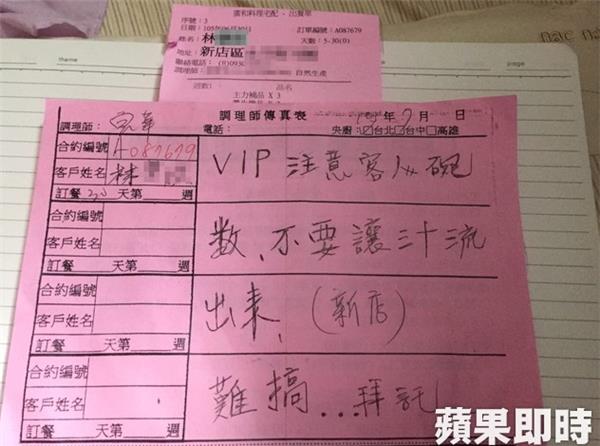 廣和料理宅配 - 出餐單
序號：3
訂單編號：A087679
姓名：林
天數：5-30(0)
地址：新店區
聯絡電話：(H)0930
調理師：
自然生產
主力補品 X 3
theme
page
調理師傳真表
調理師：
電話：
年7月 日
央廚：☑台北☑台中☐高雄
合約編號 A087679
客戶姓名 林
訂餐30天第 週
VIP 注意客人碗
合約編號
客戶姓名
訂餐 天第 週
數，不要讓三十流
合約編號
客戶姓名
訂餐 天第 週
出來，（新店）
合約編號
客戶姓名
訂餐 天第 週
難搞...拜託
蘋果即時